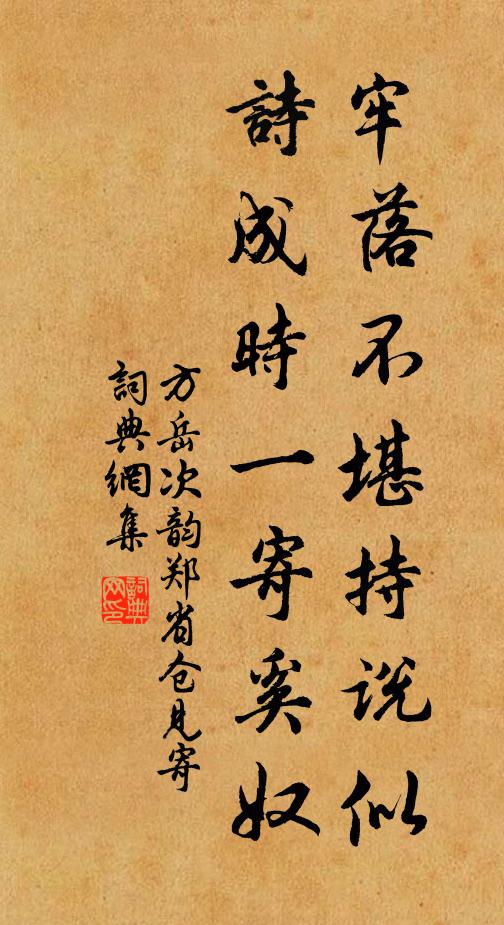 牢落不堪持说似
詩成時一寄奚奴
方岳次韵郑省仓见寄
詞典網集
詞典网印